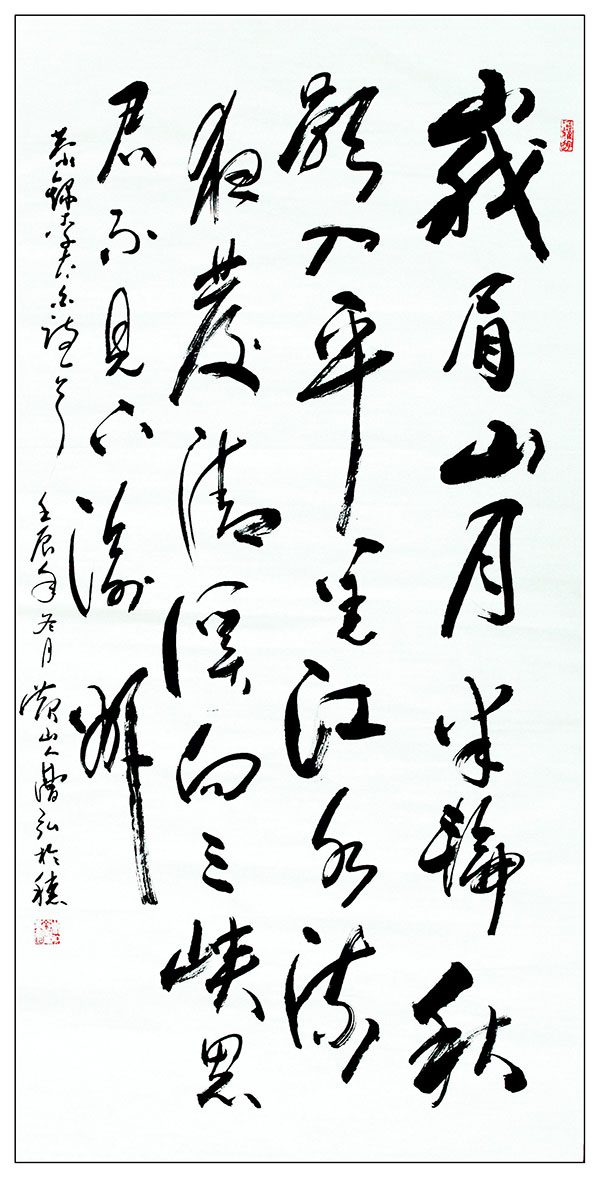 峩眉山月半輪秋
影入平羌江水流
夜發清溪向三峽思
君不見下渝州
恭錄李太白詩一首 壬辰年冬月 山人 弘於穗